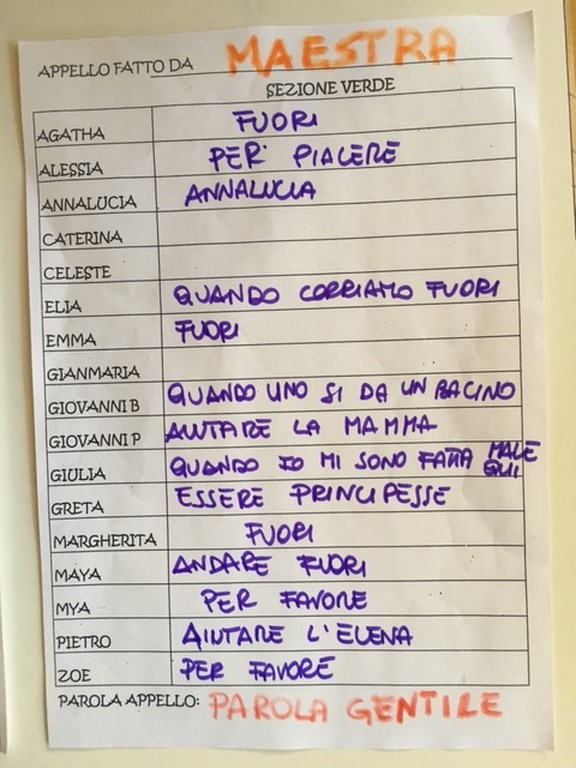 APPELLO FATTO DA MAESTRA
SEZIONE VERDE
AGATHA FUORI
ALESSIA PER PIACERE
ANNALUCIA ANNALUCIA
CATERINA
CELESTE
ELIA QUANDO CORRIAMO FUORI
EMMA FUORI
GIANMARIA
GIOVANNI B QUANDO UNO SI DA UN BACINO
GIOVANNI P AIUTARE LA MAMMA
GIULIA QUANDO IO MI SONO FATTA MALE QUI
GRETA ESSERE PRINCIPESSE
MARGHERITA FUORI
MAYA ANDARE FUORI
MYA PER FAVORE
PIETRO AIUTARE L'ELENA
ZOE PER FAVORE
PAROLA APPELLO: PAROLA GENTILE